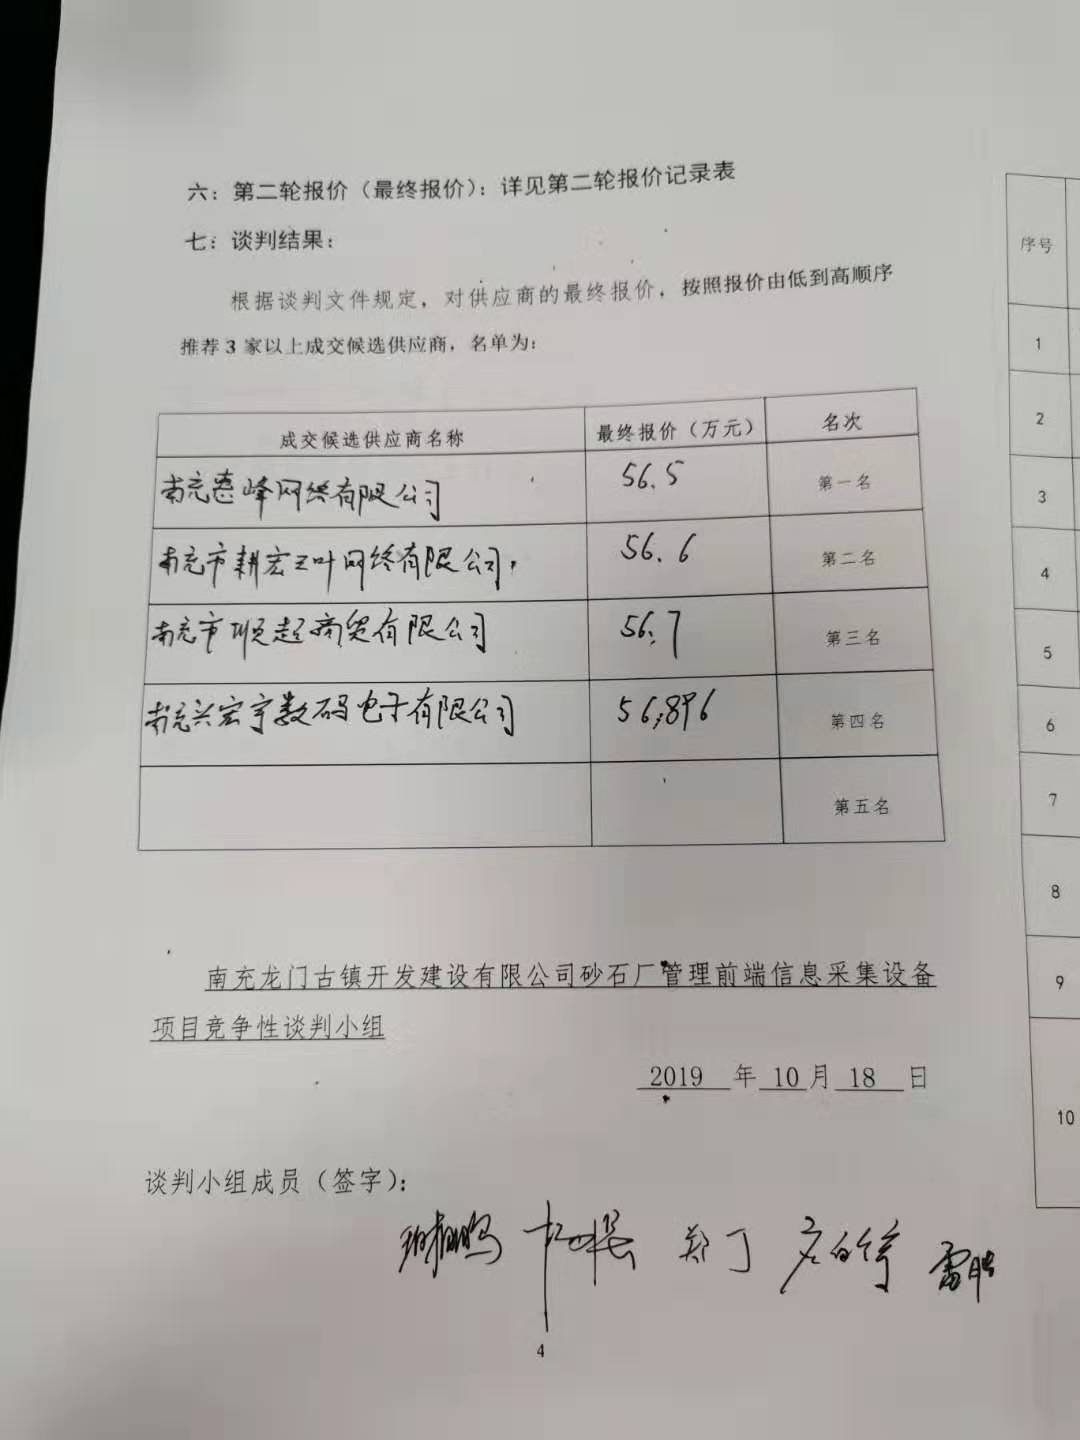 六：第二轮报价（最终报价）：详见第二轮报价记录表
七：谈判结果：
根据谈判文件规定，对供应商的最终报价，按照报价由低到高顺序
推荐 3 家以上成交候选供应商，名单为：
成交候选供应商名称 最终报价（万元） 名次
南充意峰网络有限公司 56.5 第一名
南充市耕宏三叶网络有限公司 56.6 第二名
南充市顺超商贸有限公司 56.7 第三名
南充兴宏宇数码电子有限公司 56.896 第四名
第五名
南充龙门古镇开发建设有限公司砂石厂管理前端信息采集设备
项目竞争性谈判小组
2019 年 10 月 18 日
谈判小组成员（签字）：
郑丁
4
序号
1
2
3
4
5
6
7
8
9
10